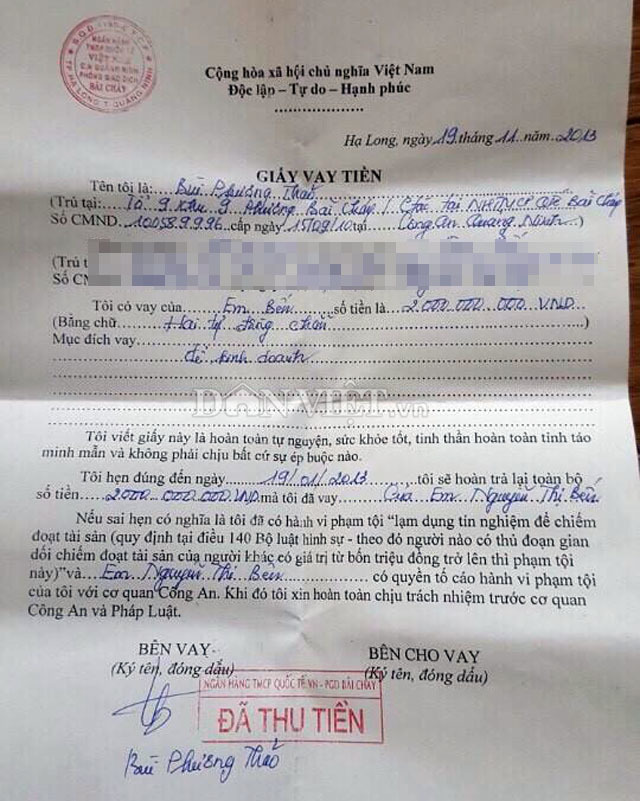 S.G.D: 0103 C.T.C.P
NGÂN HÀNG
TMCP QUỐC TẾ
VIỆT NAM
C.N QUẢNG NINH
PHÒNG GIAO DỊCH
BÃI CHÁY
TP HẠ LONG T. QUẢNG NINH
Cộng hòa xã hội chủ nghĩa Việt Nam
Độc lập – Tự do – Hạnh phúc
Hạ Long, ngày 19 tháng 11 năm 2013
GIẤY VAY TIỀN
Tên tôi là: Bùi Phương Thảo
(Trú tại: Tổ 9 Khu 9 Phường Bãi Cháy / tại NHTMCP Bãi Cháy
Số CMND 100589996 cấp ngày 15/09/10 tại Công An Quảng Ninh)
(Trú t
Số CM
Tôi có vay của Em Bến số tiền là 2000 000 000 VND
(Bằng chữ Hai tỷ đồng chẵn)
Mục đích vay
để kinh doanh
DÂN VIỆT.vn
Tôi viết giấy này là hoàn toàn tự nguyện, sức khỏe tốt, tinh thần hoàn toàn tỉnh táo
minh mẫn và không phải chịu bất cứ sự ép buộc nào.
Tôi hẹn đúng đến ngày 19/01/2013 tôi sẽ hoàn trả lại toàn bộ
số tiền 2000 000.000 VND mà tôi đã vay Của Em Nguyễn Thị Bến
Nếu sai hẹn có nghĩa là tôi đã có hành vi phạm tội “lạm dụng tín nghiệm để chiếm
đoạt tài sản (quy định tại điều 140 Bộ luật hình sự - theo đó người nào có thủ đoạn gian
dối chiếm đoạt tài sản của người khác có giá trị từ bốn triệu đồng trở lên thì phạm tội
này)”và Em Nguyễn Thị Bến có quyền tố cáo hành vi phạm tội
của tôi với cơ quan Công An. Khi đó tôi xin hoàn toàn chịu trách nhiệm trước cơ quan
Công An và Pháp Luật.
BÊN VAY BÊN CHO VAY
(Ký tên, đóng dấu) (Ký tên, đóng dấu)
NGÂN HÀNG TMCP QUỐC TẾ VN - PGD BÃI CHÁY
ĐÃ THU TIỀN
Bùi Phương Thảo